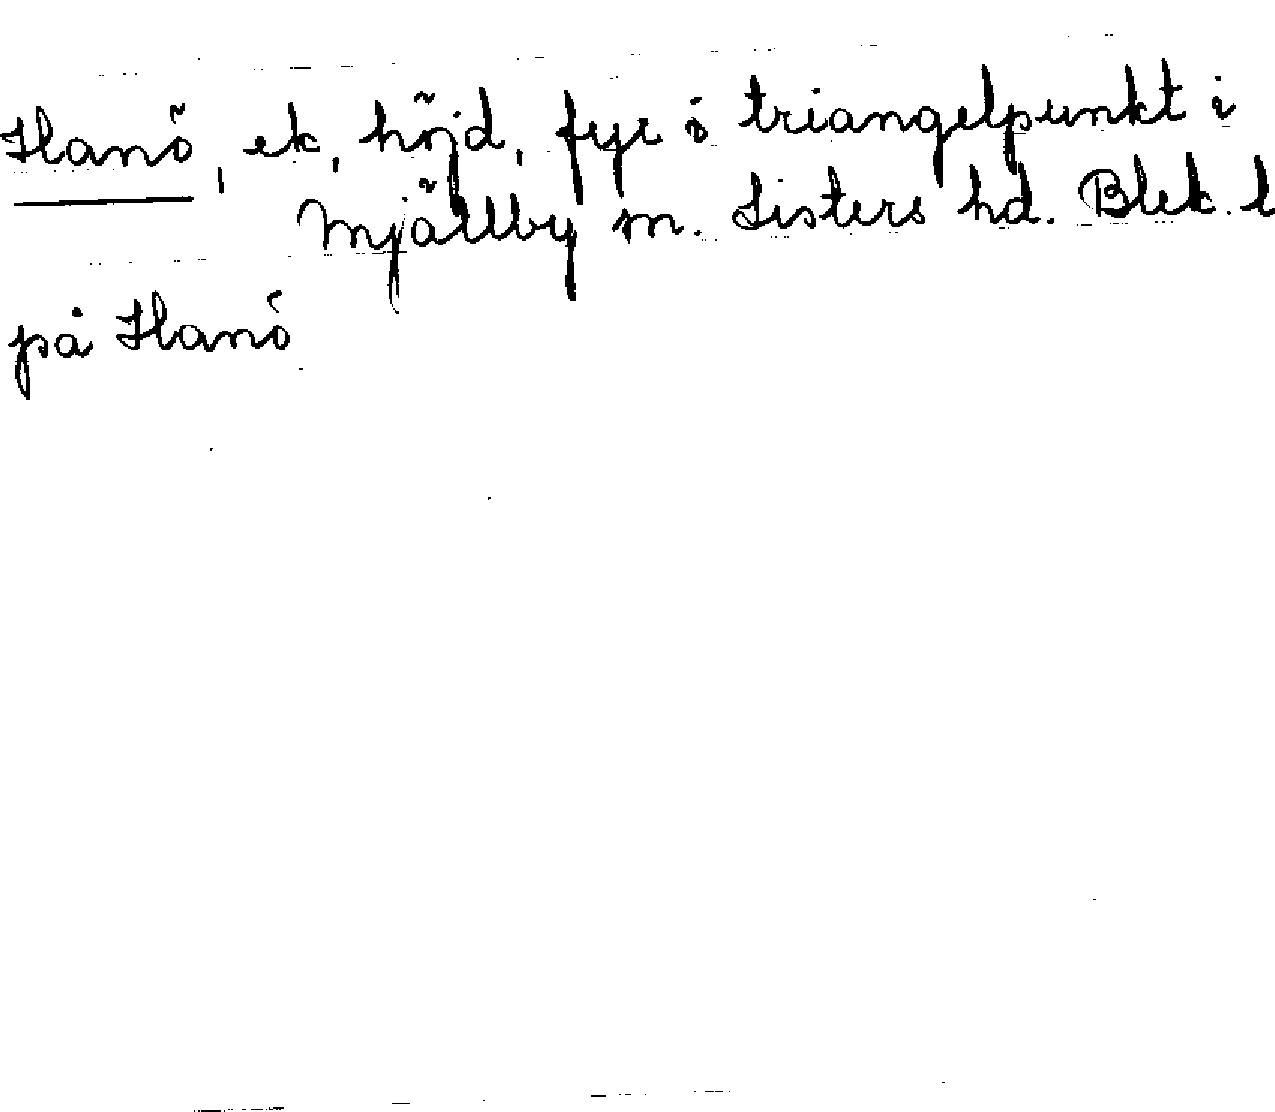 Hanö, ek, höjd, fyr o triangelpunkt i
Mjällby sn. Listers hd. Blek. l
på Hanö